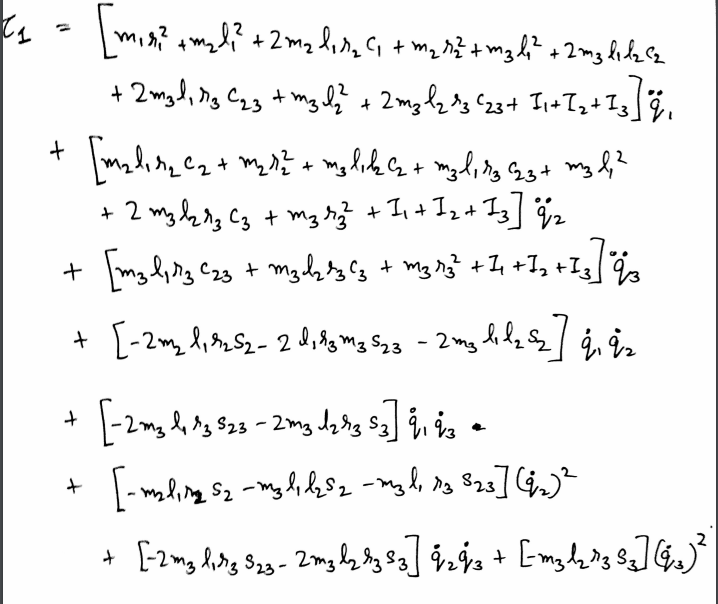 τ₁ = [m₁r₁² + m₂l₁² + 2m₂l₁r₂c₁ + m₂r₂² + m₃l₁² + 2m₃l₁l₂c₂
+ 2m₃l₁r₃c₂₃ + m₃l₂² + 2m₃l₂r₃c₂₃ + I₁+I₂+I₃] q̈₁
+ [m₂l₁r₂c₂ + m₂r₂² + m₃l₁l₂c₂ + m₃l₁r₃c₂₃ + m₃l₁²
+ 2m₃l₂r₃c₃ + m₃r₃² + I₁+I₂+I₃] q̈₂
+ [m₃l₁r₃c₂₃ + m₃l₂r₃c₃ + m₃r₃² + I₁+I₂+I₃] q̈₃
+ [-2m₂l₁r₂s₂ - 2l₁r₃m₃s₂₃ - 2m₃l₁l₂s₂] q̇₁q̇₂
+ [-2m₃l₁r₃s₂₃ - 2m₃l₂r₃s₃] q̇₁q̇₃
+ [-m₂l₁r₂s₂ - m₃l₁l₂s₂ - m₃l₁r₃s₂₃] (q̇₂)²
+ [-2m₃l₁r₃s₂₃ - 2m₃l₂r₃s₃] q̇₂q̇₃ + [-m₃l₂r₃s₃] (q̇₃)²